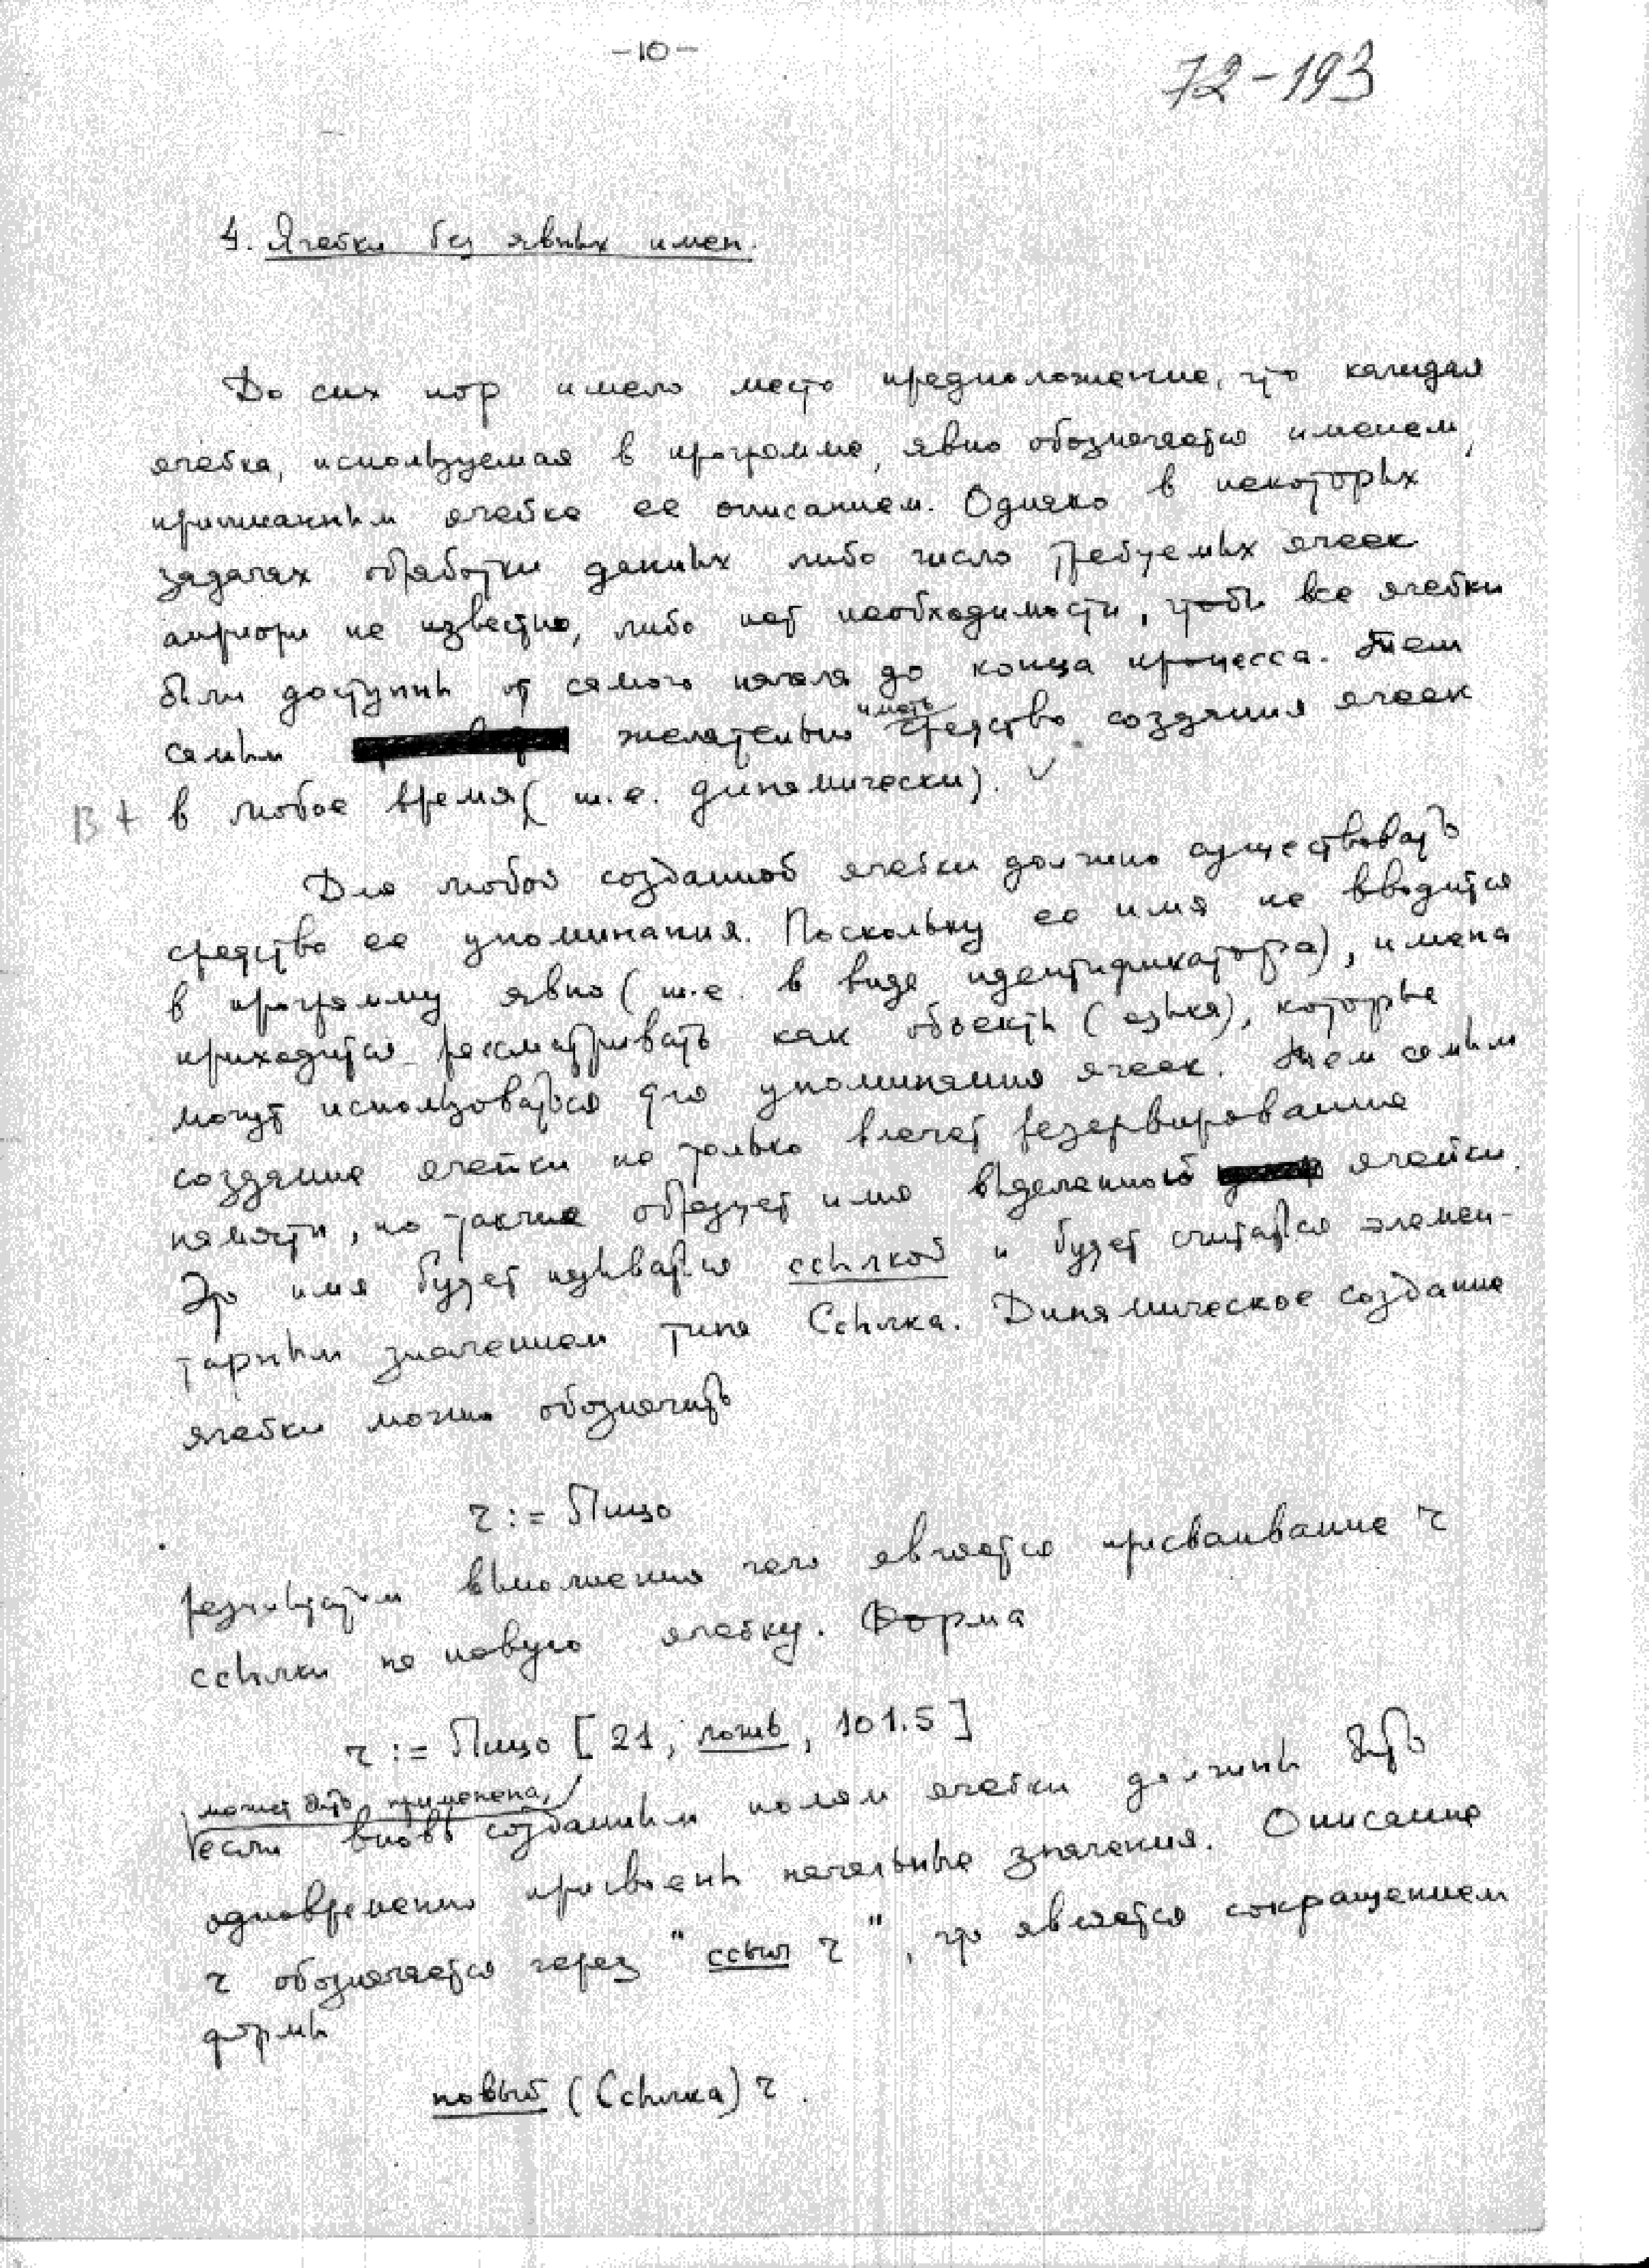 -10-
72-193
4. Ячейки без явных имен.
До сих пор имело место предположение, что каждая
ячейка, используемая в программе, явно обозначается именем,
приписанным ячейке ее описанием. Однако в некоторых
задачах обработки данных либо число требуемых ячеек
априори не известно, либо нет необходимости, чтобы все ячейки
были доступны от самого начала до конца процесса. Тем
самым желательно иметь средство создания ячеек
В+ в любое время (т.е. динамически).
Для любой созданной ячейки должно существовать
средство ее упоминания. Поскольку ее имя не вводится
в программу явно (т.е. в виде идентификатора), имена
приходится рассматривать как объекты (языка), которые
могут использоваться для упоминания ячеек. Тем самым
создание ячейки не только влечет резервирование
памяти, но также образует имя выделенной ячейки.
Это имя будет называться ссылкой и будет считаться элемен-
тарным значением типа Ссылка. Динамическое создание
ячейки можно обозначить
r := Лицо
результатом выполнения чего является присваивание r
ссылки на новую ячейку. Форма
r := Лицо [21, ложь, 101.5]
может быть применена,
если вновь созданным полям ячейки должны быть
одновременно присвоены начальные значения. Описание
r обозначается через "ссыл r", что является сокращением
формы
новый (Ссылка) r.